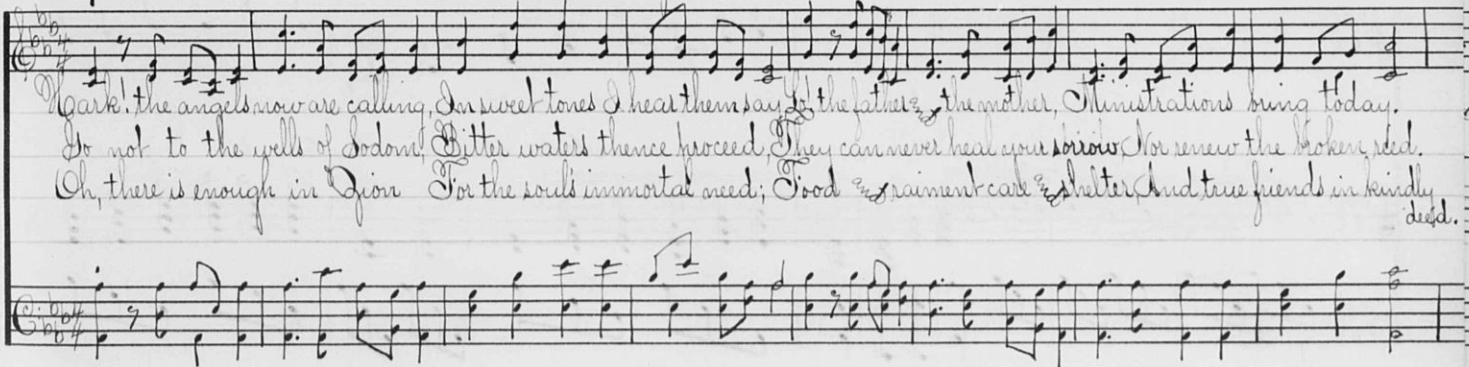 Hark! the angels now are calling, In sweet tones I hear them say, Lo! the father & the mother, Ministrations bring today.
Go not to the wells of Sodom! Bitter waters thence proceed, They can never heal your sorrow, Nor renew the broken reed.
Oh, there is enough in Zion For the soul's immortal need; Food & raiment care & shelter, And true friends in kindly
deed.